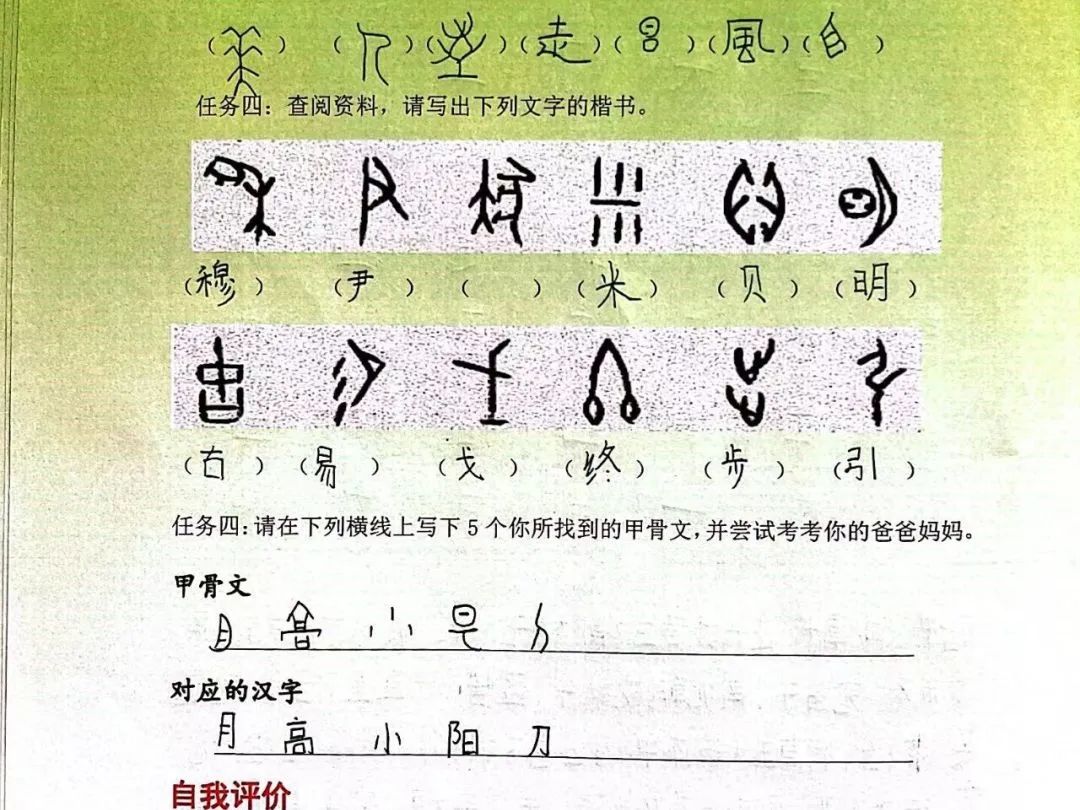 （ ）（ ）（ ）（走）（ ）（風）（ ）
任务四：查阅资料，请写出下列文字的楷书。
（穆）（尹）（ ）（米）（贝）（明）
（右）（易）（戈）（终）（步）（引）
任务四：请在下列横线上写下 5 个你所找到的甲骨文，并尝试考考你的爸爸妈妈。
甲骨文
对应的汉字
月 高 小 阳 刀
自我评价